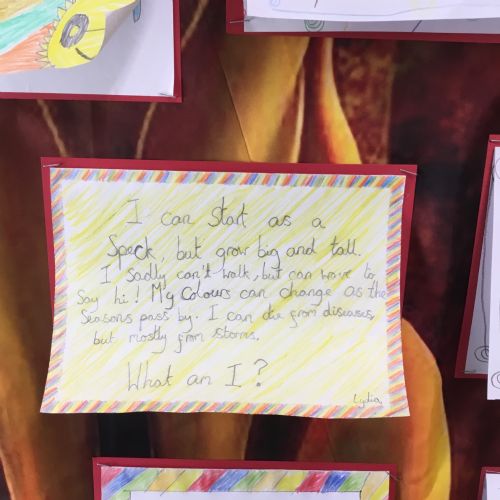 I can start as a
Speck, but grow big and tall.
I sadly can't walk, but can wave to
Say hi! My Colours can change as the
Seasons pass by. I can die from diseases,
but mostly from storms.
What am I?
Lydia